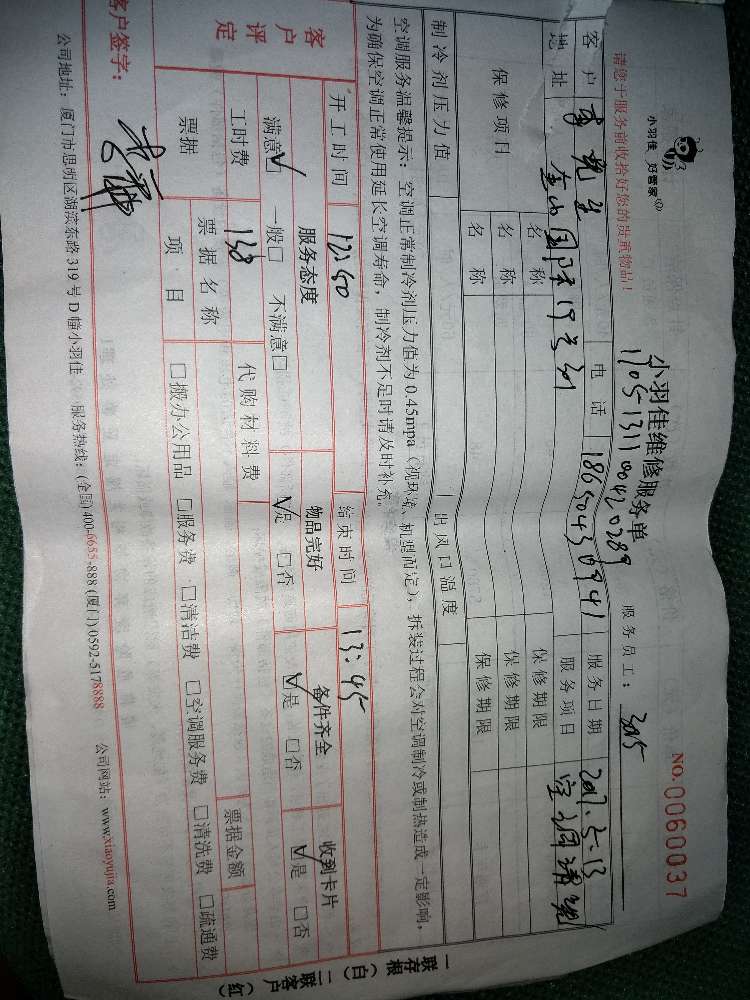 小羽佳 好管家
小羽佳维修服务单
NO.0060037
1705131100420289
请您于服务前收拾好您的贵重物品！
服务员工：3015
客户 李先生 电话 18650430941 服务日期 2017.5.13
地址 金山国际19号301 服务项目 空调清洗
保修项目 名称 保修期限
名称 保修期限
名称 保修期限
制冷剂压力值 出风口温度
空调服务温馨提示：空调正常制冷剂压力值为0.45mpa（视环境、机型而定），拆装过程会对空调制冷或制热造成一定影响，
为确保空调正常使用延长空调寿命，制冷剂不足时请及时补充。
开工时间 12:50 结束时间 13:45
客户评定 服务态度 物品完好 备件齐全 收到卡片
满意☑ 一般□ 不满意□ ☑是 □否 ☑是 □否 ☑是 □否
工时费 138 代购材料费
票据 票据名称 票据金额
项目 □搬办公用品 □服务费 □清洁费 □空调服务费 □清洗费 □疏通费
客户签字：
公司地址：厦门市思明区湖滨东路319号D幢小羽佳 服务热线：(全国)400-6655-888 (厦门)0592-5178888 公司网站：www.xiaoyujia.com
一联存根（白）二联客户（红）